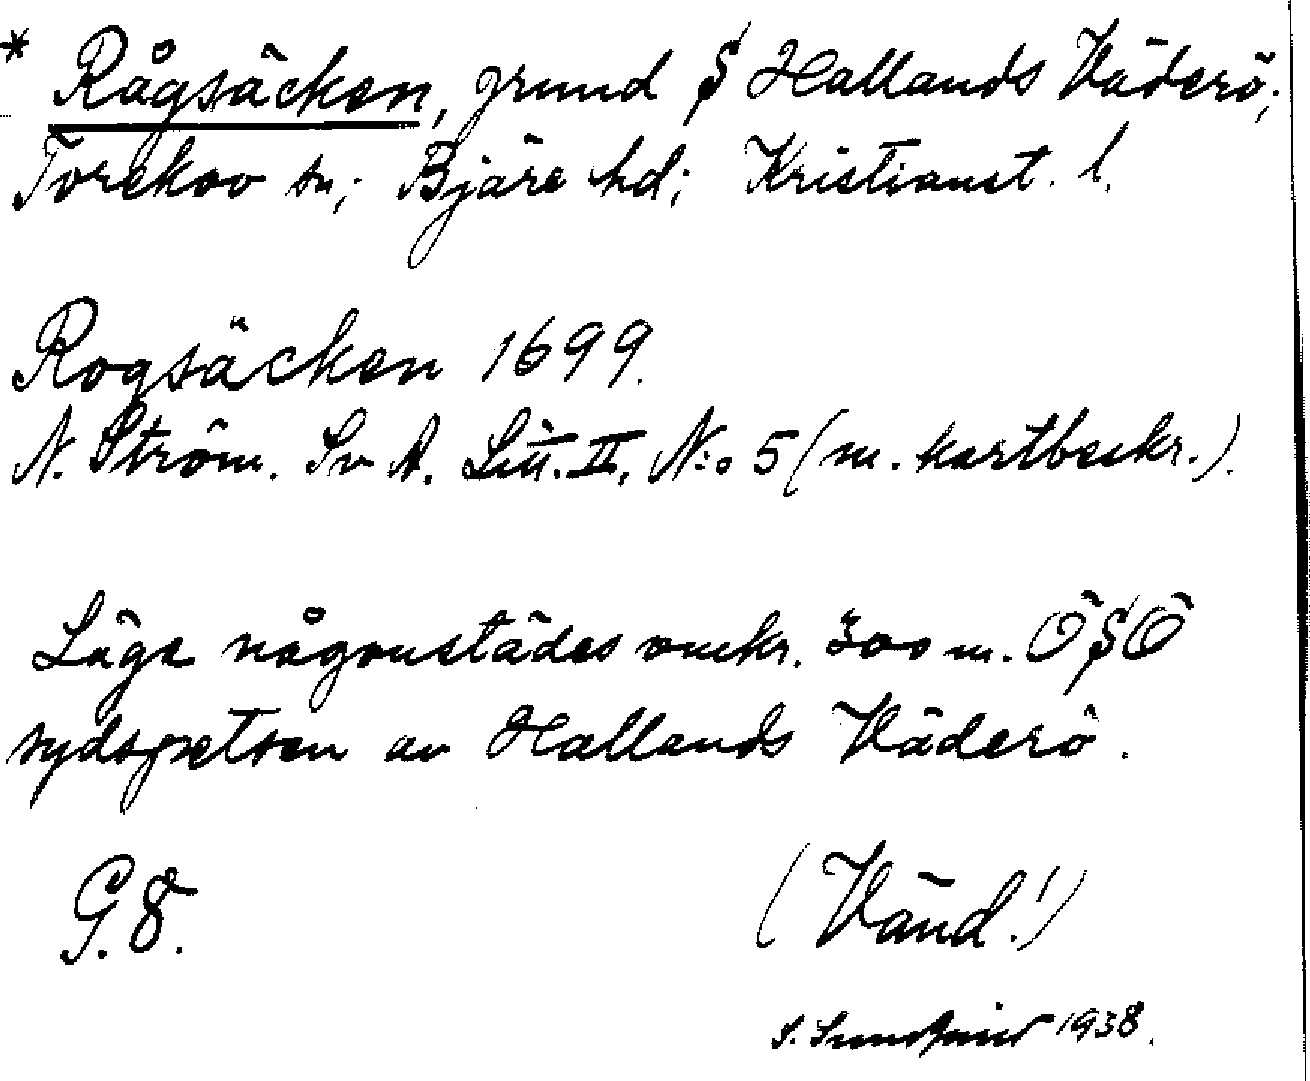 * Rågsäcken, grund S Hallands Väderö;
Torekov sn; Bjäre hd; Kristianst. l.
Rogsäcken 1699.
N. Ström. Sv A. Litt. II, N:o 5 (m. kartbeskr.).
Läge någonstädes omkr. 300 m. ÖSÖ
sydspetsen av Hallands Väderö.
G. 8.
(Vänd!)
S. Sundqvist 1938.